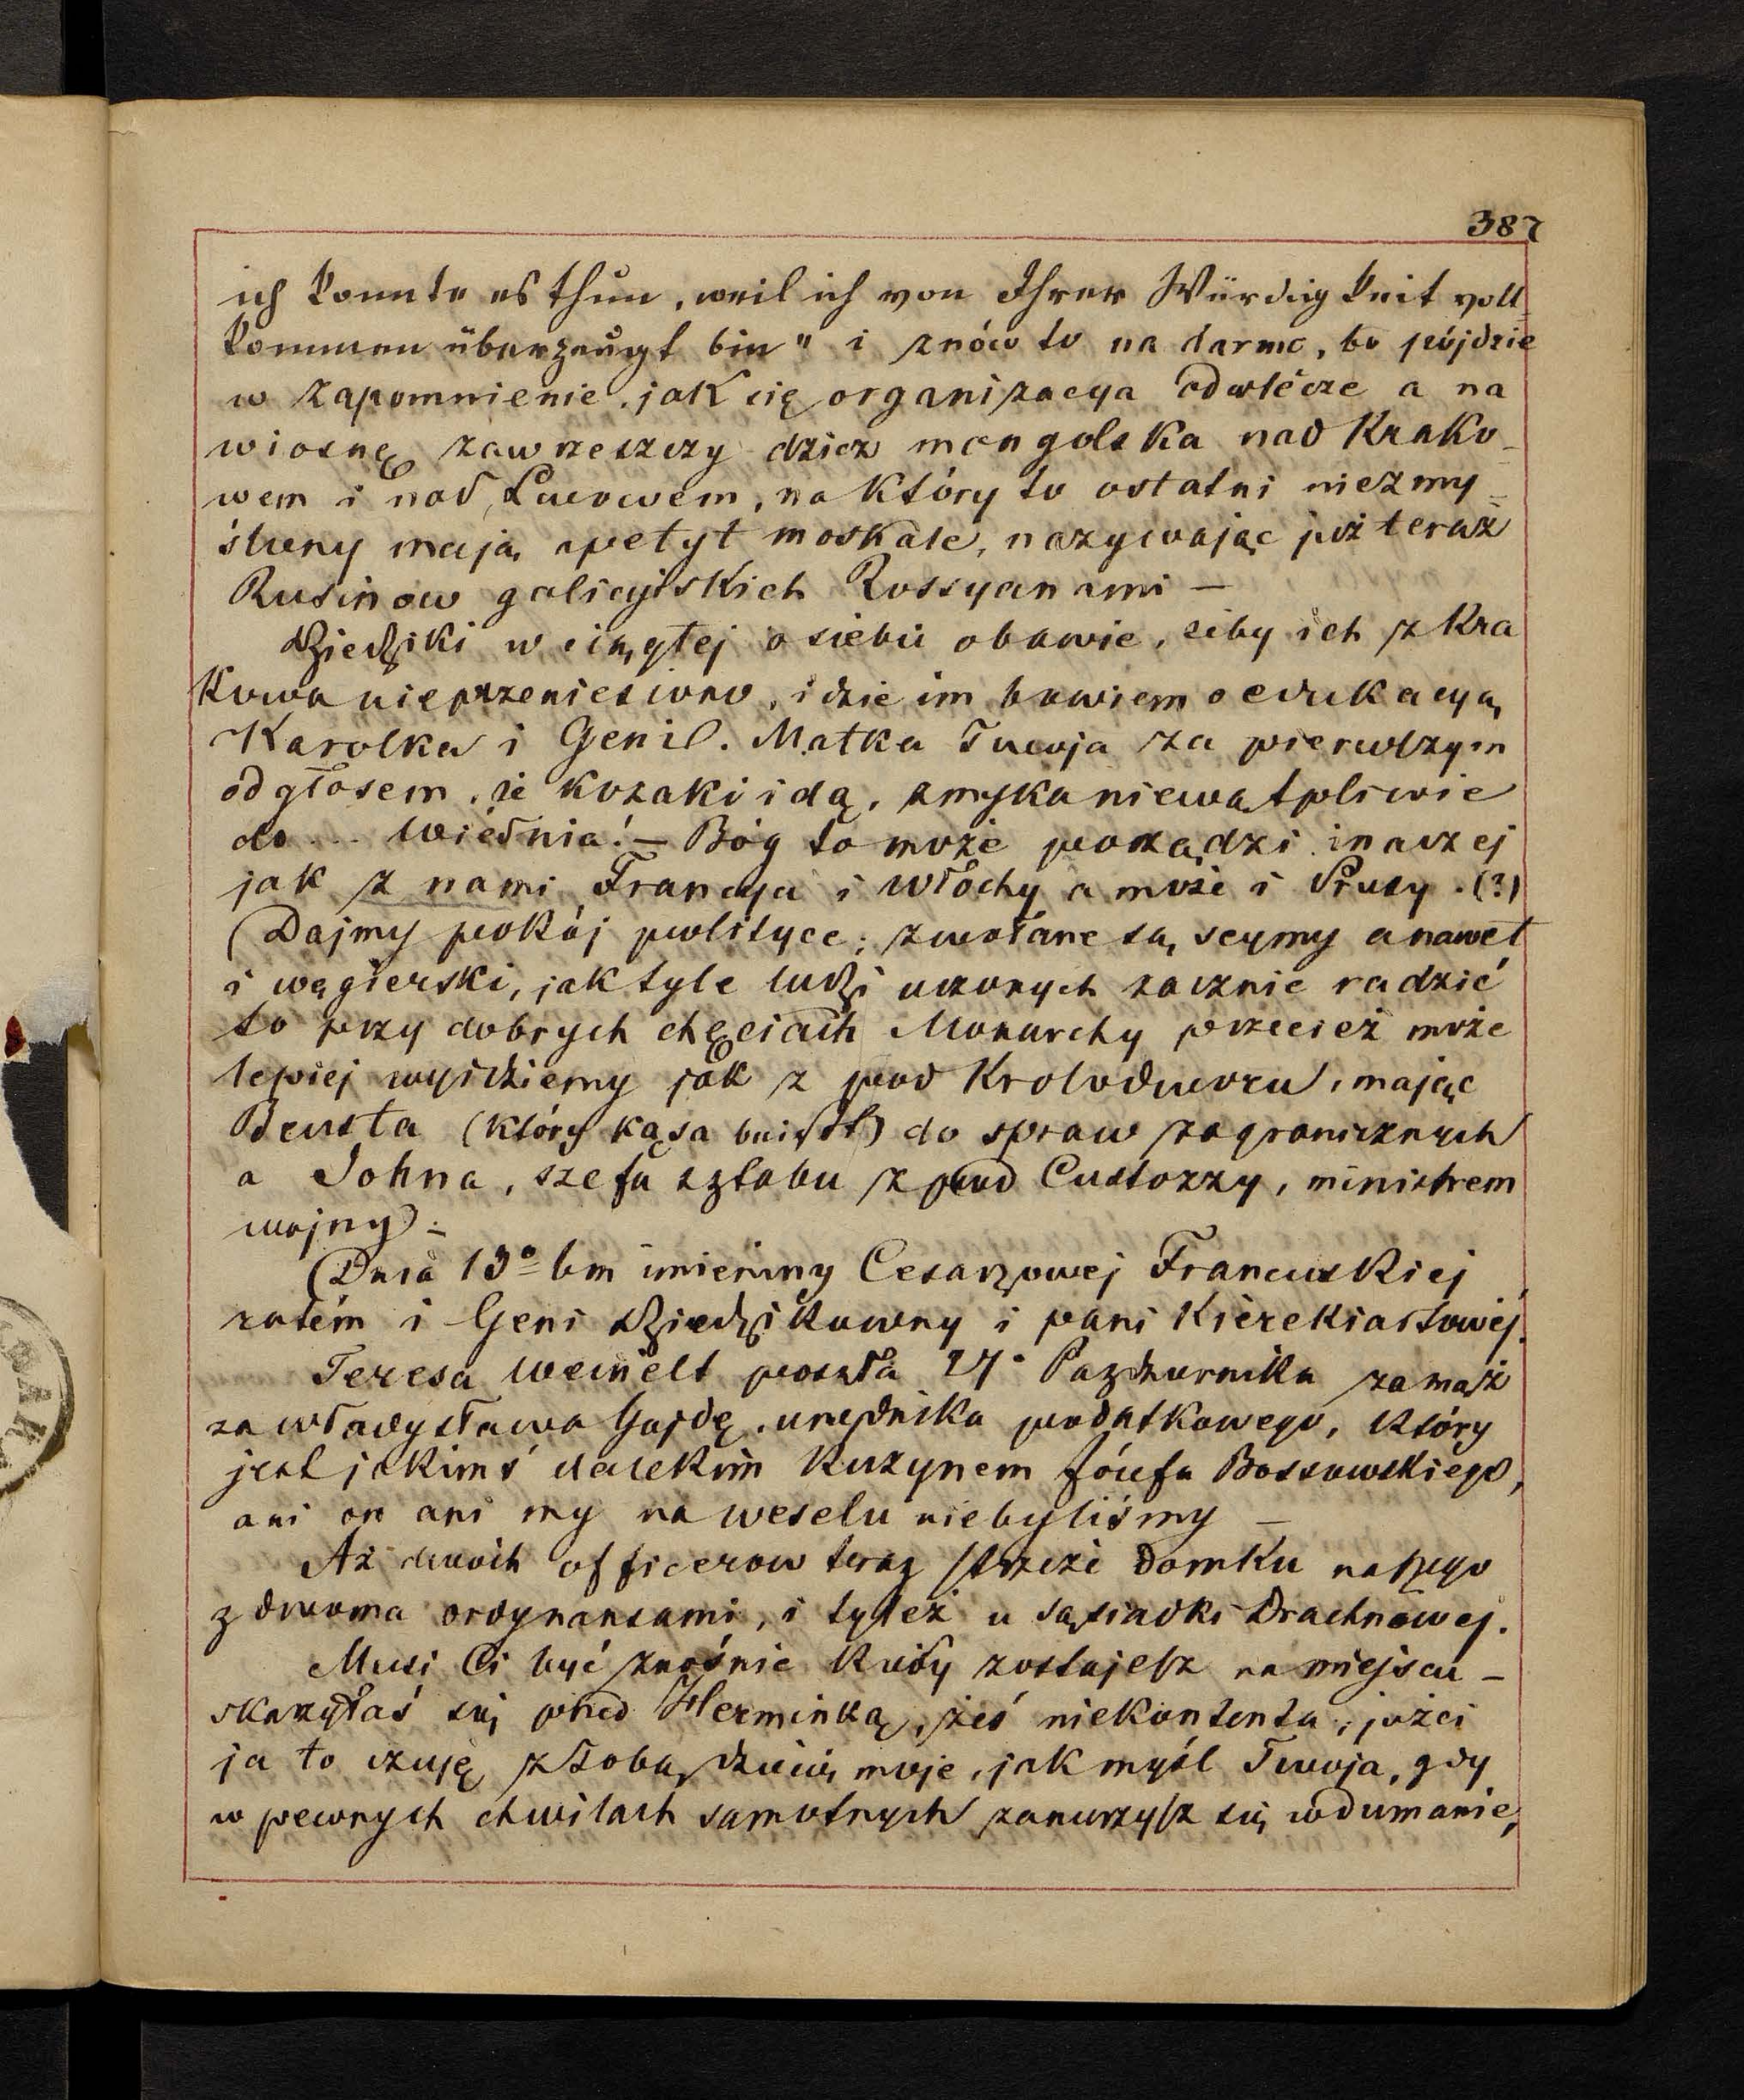 387
ich konnte es thun, weil ich von Ihrer Würdigkeit voll
kommen überzeugt bin" i znów to na darmo, bo pójdzie
w zapomnienie, jak się organizacya odwlécze a na
wiosnę zawrzeszczy dzicz mongolska nad Krako-
wem i nad Lwowem, na który to ostatni niezmy-
ślony mają apetyt moskale, nazywając już teraz
Rusinow galicyjskich Rossyanami —
Dziedziki w ciągłej o siebie obawie, żeby ich z Kra
kowa nieprzeniesiono, idzie im bowiem o edukacyą
Karolka i Geni. Matka Twoja za pierwszym
odgłosem, że kozaki idą, zmyka niewątpliwie
do ... Wiédnia! — Bóg to może porządzi inaczej
jak z nami Francya i Włochy a może i Prusy. (?)
(Dajmy pokój polityce; zwołane są seymy a nawet
i węgierski, jak tyle ludzi uczonych zacznie radzić
to przy dobrych chęciach Monarchy przecież może
lepiej wyidziemy jak z pod Krolodworu, mając
Beusta (który kąsa beißt) do spraw zagranicznych
a Johna, szefa sztabu z pod Custozzy, ministrem
wojny).
(Dnia 13º bm imieniny Cesarzowej Francuskiej
zatém i Geni Dziedzikowny i pani Kierekiastowéj.
Teresa Weinelt poszła Pazdziernika za mąż
za Władysława Gajdę, urzędnika podatkowego, który
jest jakimś dalekim kuzynem Józefa Bossowskiego,
ani on ani my na weselu niebyliśmy —
Aż dwóch officerow teraz strzeże domku naszego
z dwoma ordynansami, i tyleż u sąsiadki Drachnowej.
Musi Ci być znośnie kiedy zostajesz na miejscu —
skarżyłaś się przed Herminką, żeś niekontenta, jużci
ja to czuję z Tobą dziecię moje, jak myśl Twoja, gdy
w pewnych chwilach samotnych zanurzysz się w dumanie,